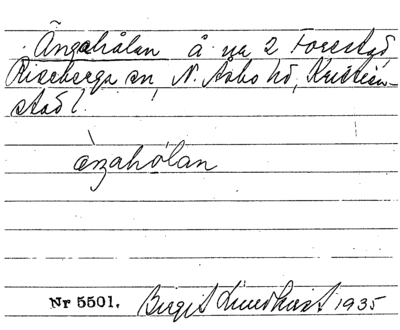 Ängahålan å nr 2 Forestad,
Riseberga sn, N. Åsbo hd, Kristian-
stad l.
ä̀ŋahólan
Nr 5501. Birgit Lundkvist 1935